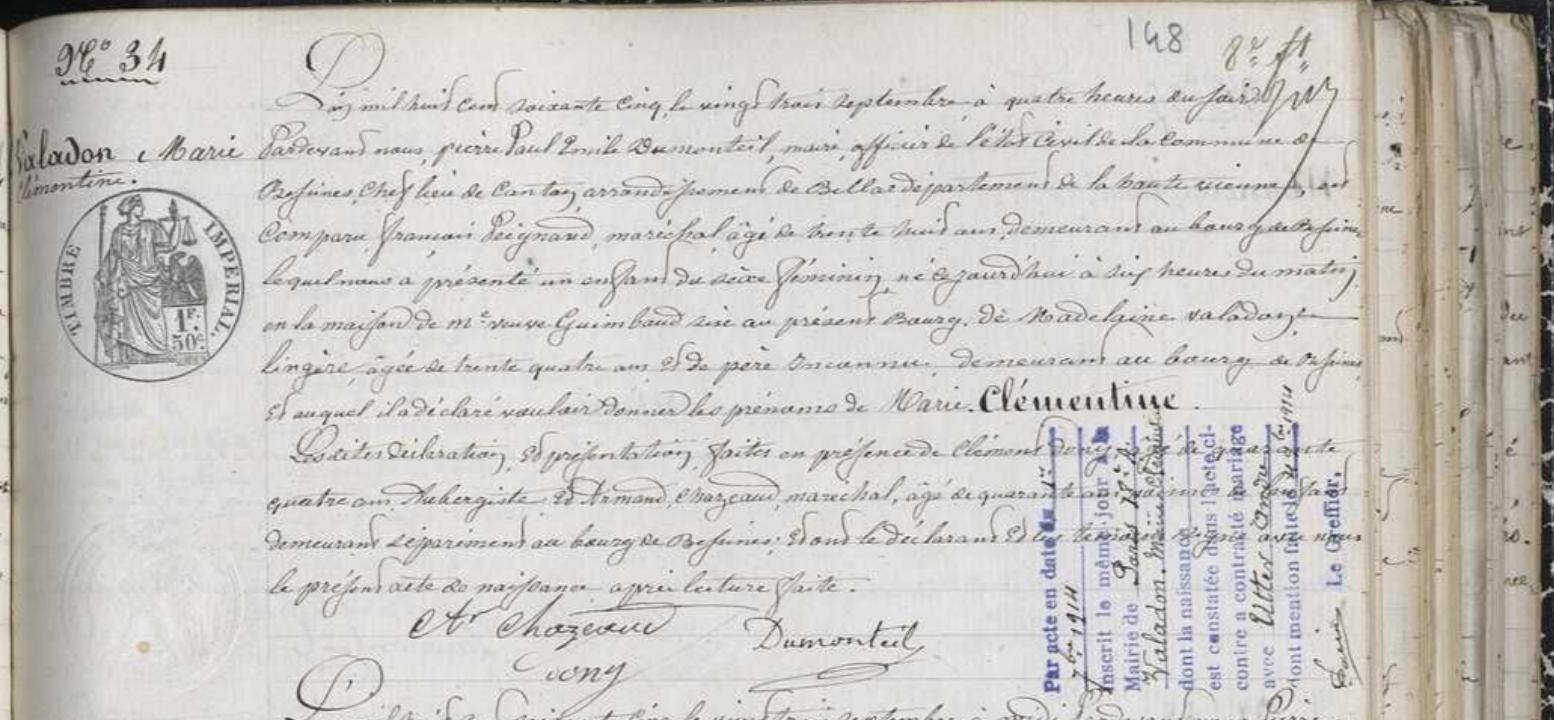 148
N° 34
Valadon Marie
Clémentine.
TIMBRE IMPERIAL
1F.
50c.
L'an mil huit cent soixante cinq, le vingt trois septembre à quatre heures du soir
Pardevant nous, pierre Paul Emile Dumonteil, maire, officier de l'état Civil de la commune de
Bessines, Chef lieu de Canton, arrondissement de Bellac département de la haute vienne, est
Comparu, françois Peignaud, maréchal, âgé de trente huit ans, demeurant au bourg de Bessines,
lequel nous a présenté un enfant du sexe féminin, né cejourd'hui à six heures du matin
en la maison de me veuve Guimbaud sise au présent Bourg. de Madelaine valadon,
lingère, âgée de trente quatre ans et de père Inconnu, demeurant au bourg de Bessines,
Et auquel il a déclaré vouloir donner les prénoms de Marie. Clémentine.
Lesdites déclaration, Et présentation, faites en présence de Clément Dony âgé de quarante
quatre ans Aubergiste, Et Armand, Chazeaud, marechal, âgé de quarante ans
demeurant séparement au bourg de Bessines; Et ont le déclarant Et les témoins signé avec nous
le présent acte de naissance, après lecture faite.
Ar Chazeaud
Dumonteil
Dony
Par acte en date du 1er
7bre 1914
inscrit le même jour à la
Mairie de Paris 18e
Valadon Marie Clémentine
dont la naissance
est constatée dans l'acte ci-
contre a contracté mariage
avec Utter André
dont mention faite le 4 9bre 1914
Le Greffier,